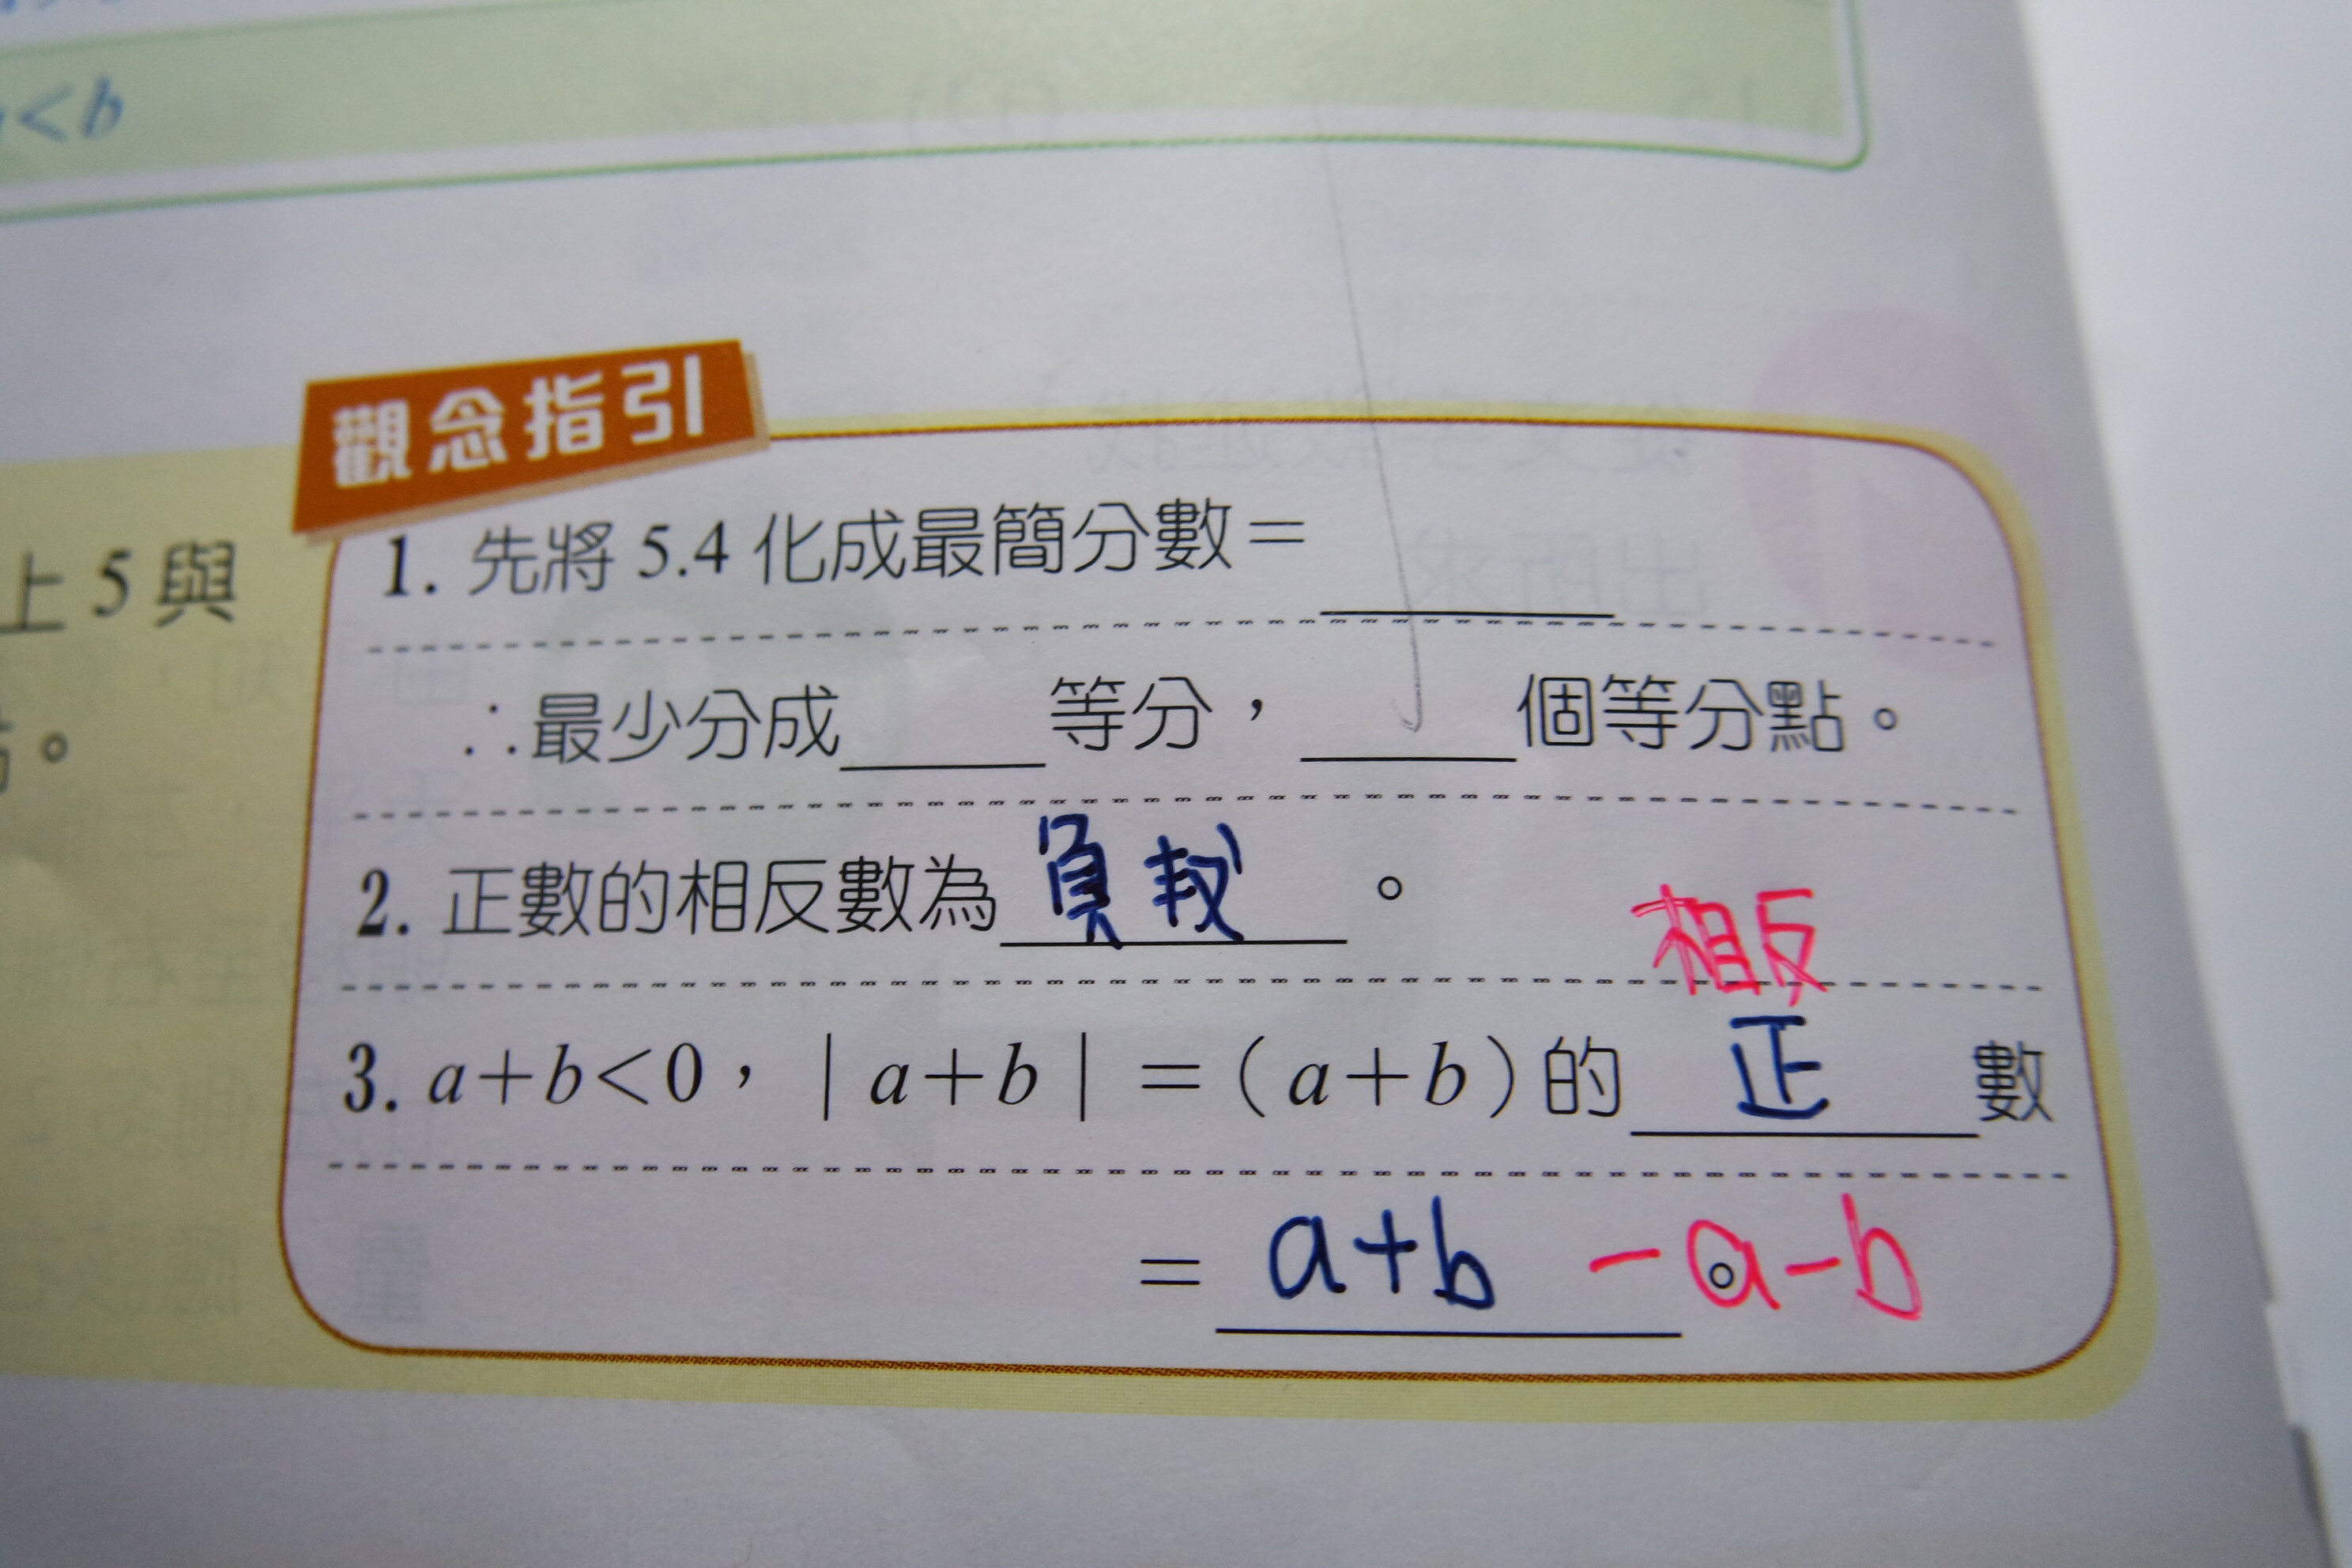 <b
觀念指引
上 5 與
1. 先將 5.4 化成最簡分數=
∴最少分成 等分, 個等分點。
2. 正數的相反數為 負 。
相反
3. a+b<0, |a+b|=(a+b)的 正 數
= a+b 。 -a-b